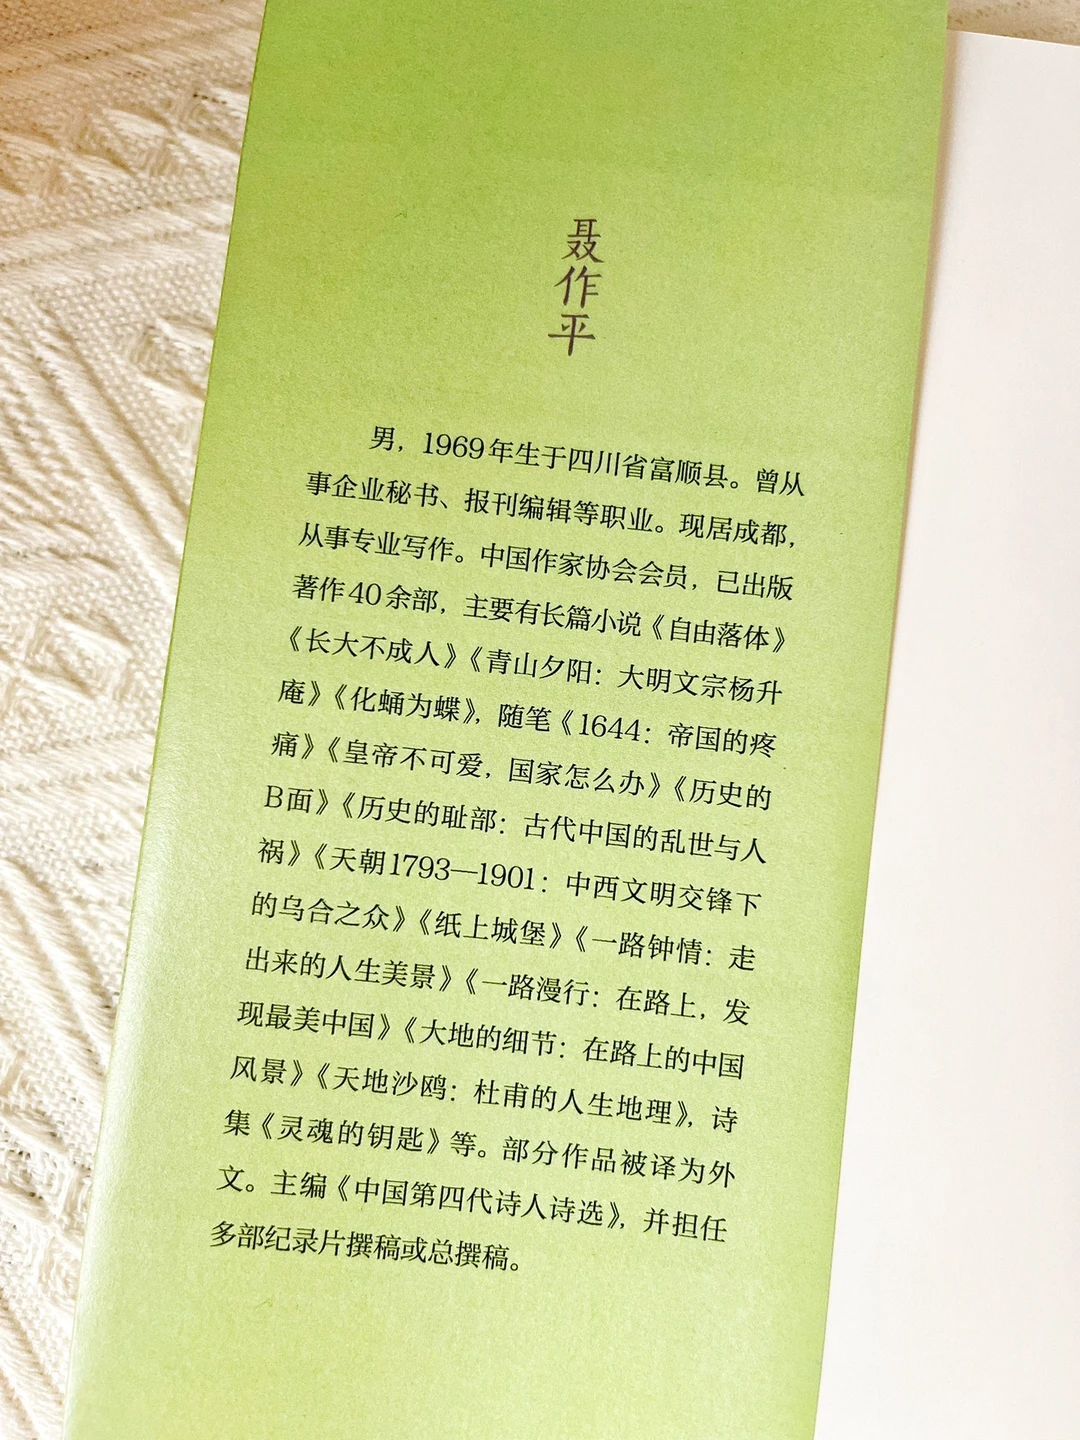 聂作平
男，1969年生于四川省富顺县。曾从
事企业秘书、报刊编辑等职业。现居成都，
从事专业写作。中国作家协会会员，已出版
著作40余部，主要有长篇小说《自由落体》
《长大不成人》《青山夕阳：大明文宗杨升
庵》《化蛹为蝶》，随笔《1644：帝国的疼
痛》《皇帝不可爱，国家怎么办》《历史的
B面》《历史的耻部：古代中国的乱世与人
祸》《天朝1793—1901：中西文明交锋下
的乌合之众》《纸上城堡》《一路钟情：走
出来的人生美景》《一路漫行：在路上，发
现最美中国》《大地的细节：在路上的中国
风景》《天地沙鸥：杜甫的人生地理》，诗
集《灵魂的钥匙》等。部分作品被译为外
文。主编《中国第四代诗人诗选》，并担任
多部纪录片撰稿或总撰稿。